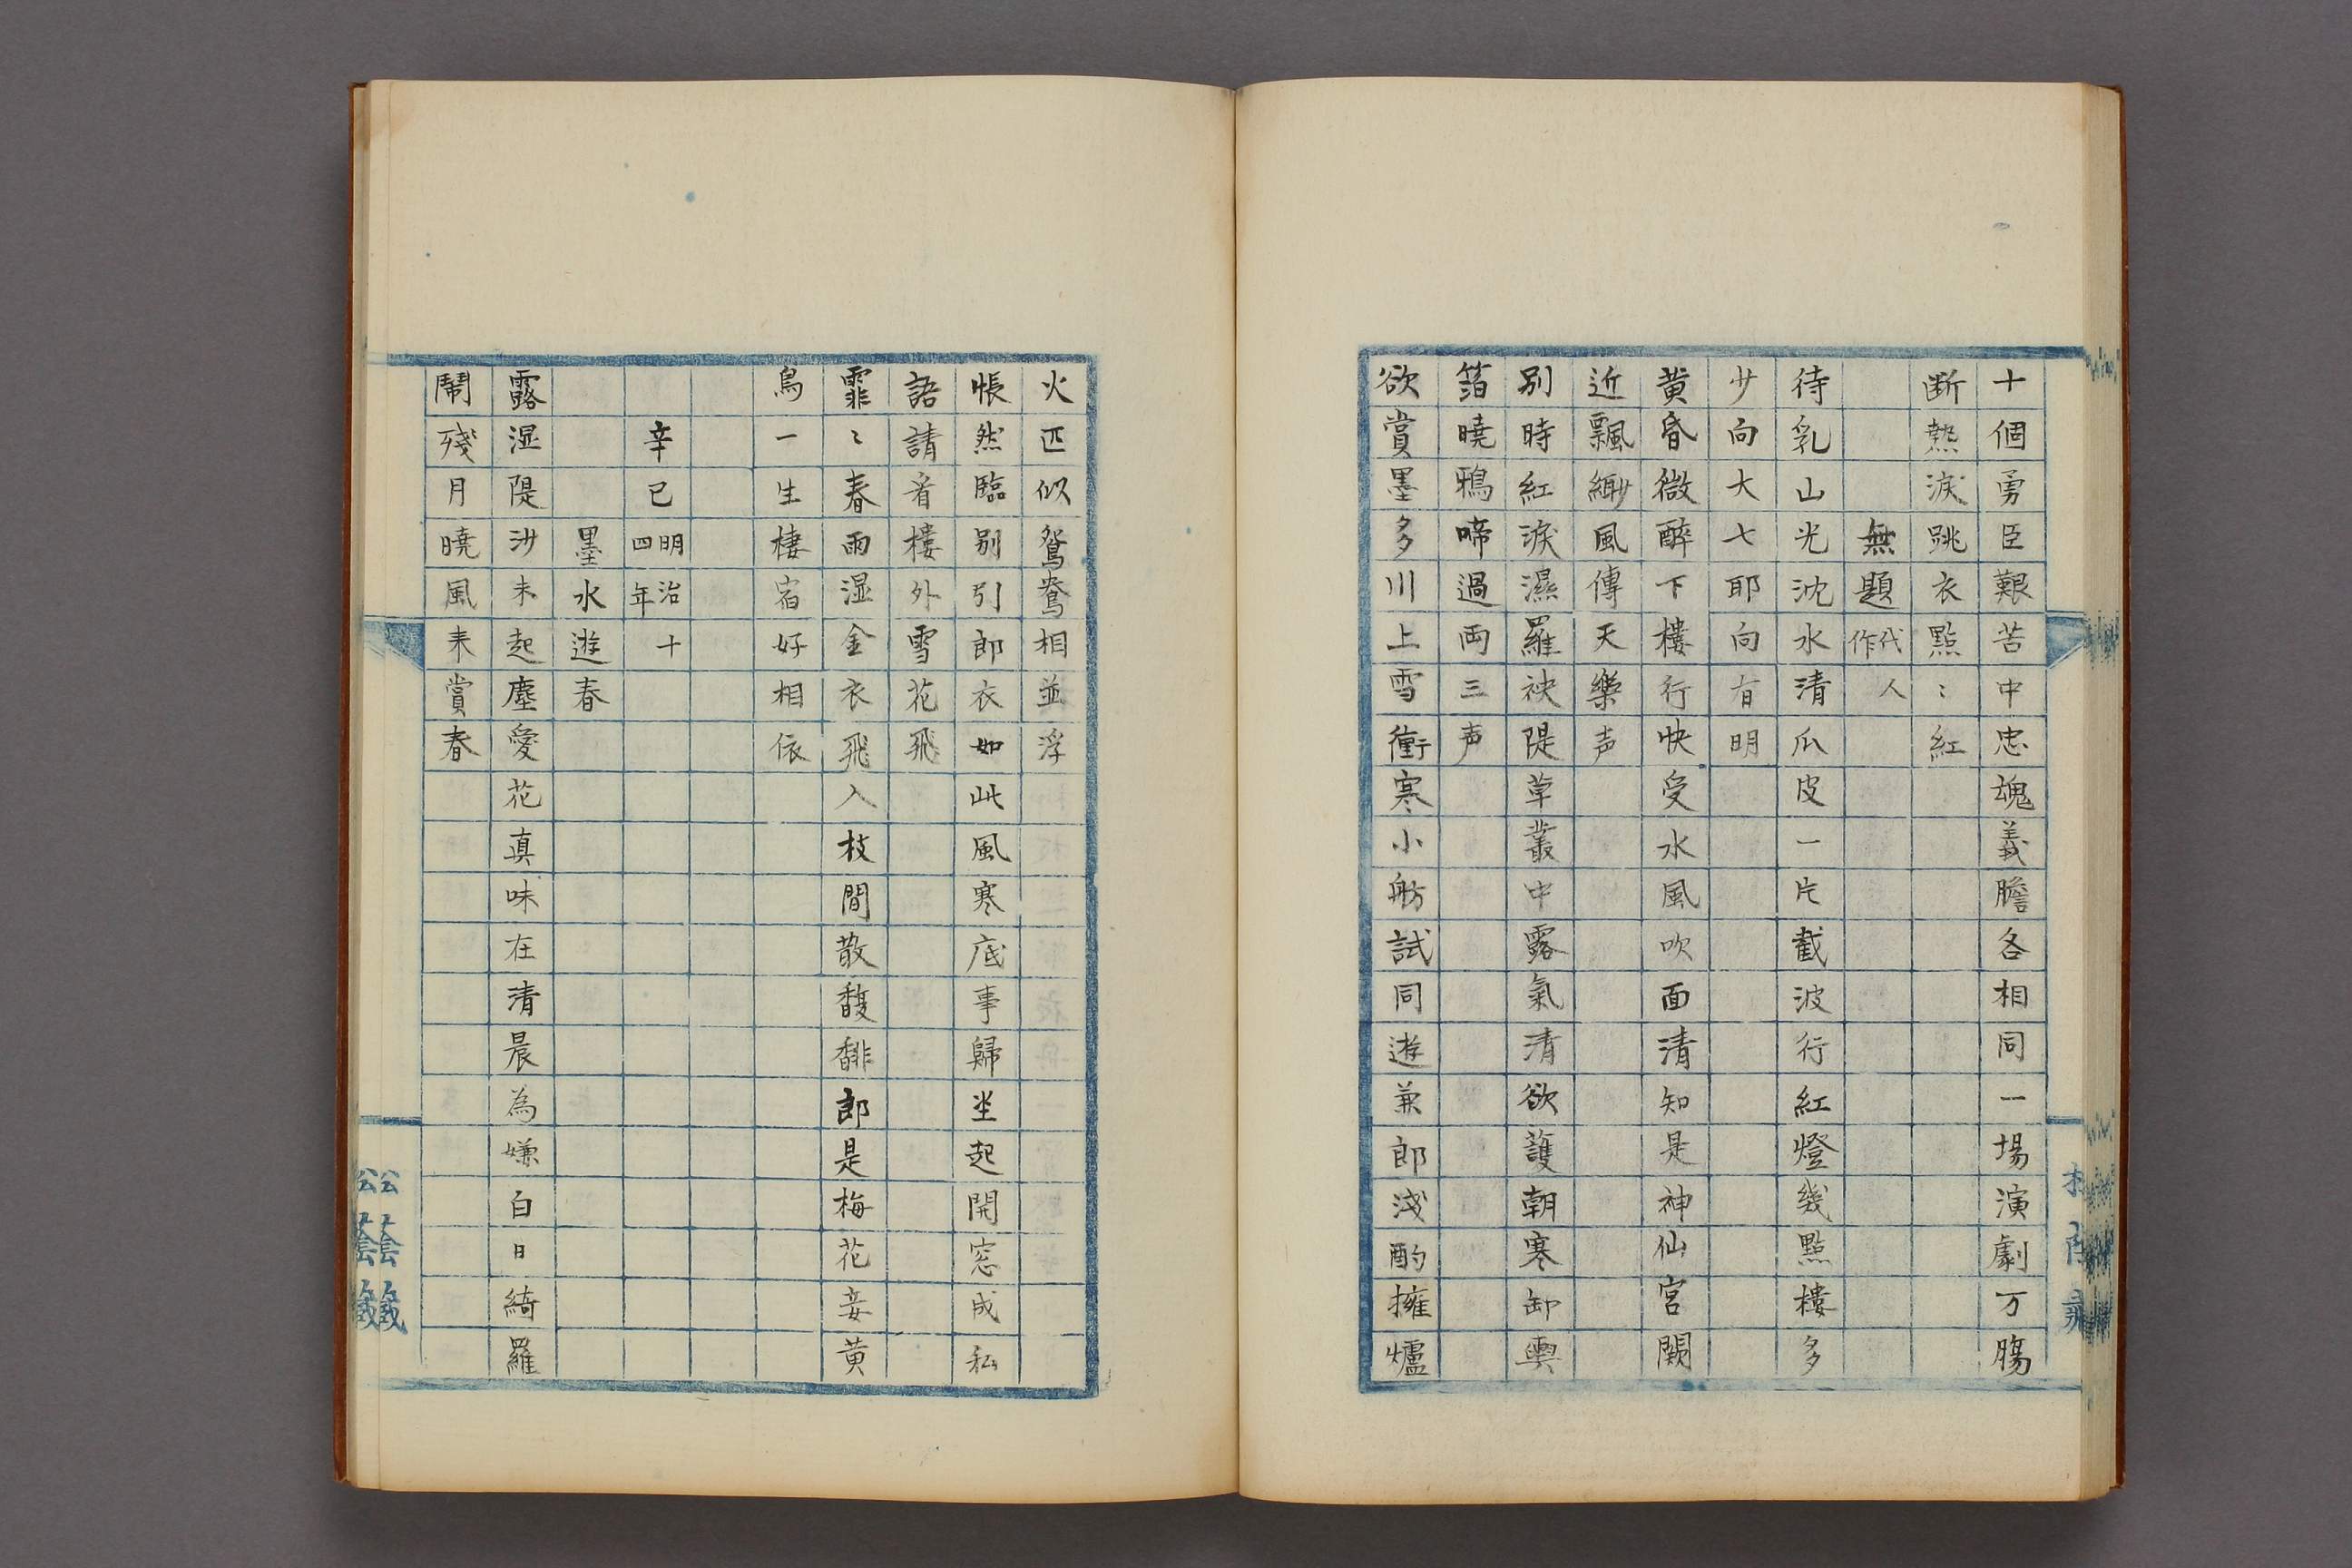 十個勇臣艱苦中忠魂義膽各相同一場演劇万膓
断熱淚跳衣點〻紅
無題代人作
待乳山光沈水清瓜皮一片截波行紅燈幾點樓多
少向大七耶向有明
黄昏微醉下樓行快受水風吹面清知是神仙宮闕
近飄緲風傳天樂声
別時紅淚濕羅袂隄草叢中露氣清欲護朝寒卸輿
箔曉鴉啼過両三声
欲賞墨多川上雪衝寒小舫試同遊兼郎淺酌擁爐
火匹似鴛鴦相並浮
悵然臨別引郎衣如此風寒底事歸坐起開窓成私
語請看樓外雪花飛
霏〻春雨湿金衣飛入枝間散馥馡郎是梅花妾黄
鳥一生棲宿好相依
辛巳明治十四年
墨水遊春
露湿隄沙未起塵愛花真味在清晨為嫌白日綺羅
鬧殘月曉風来賞春
松蔭𥴊